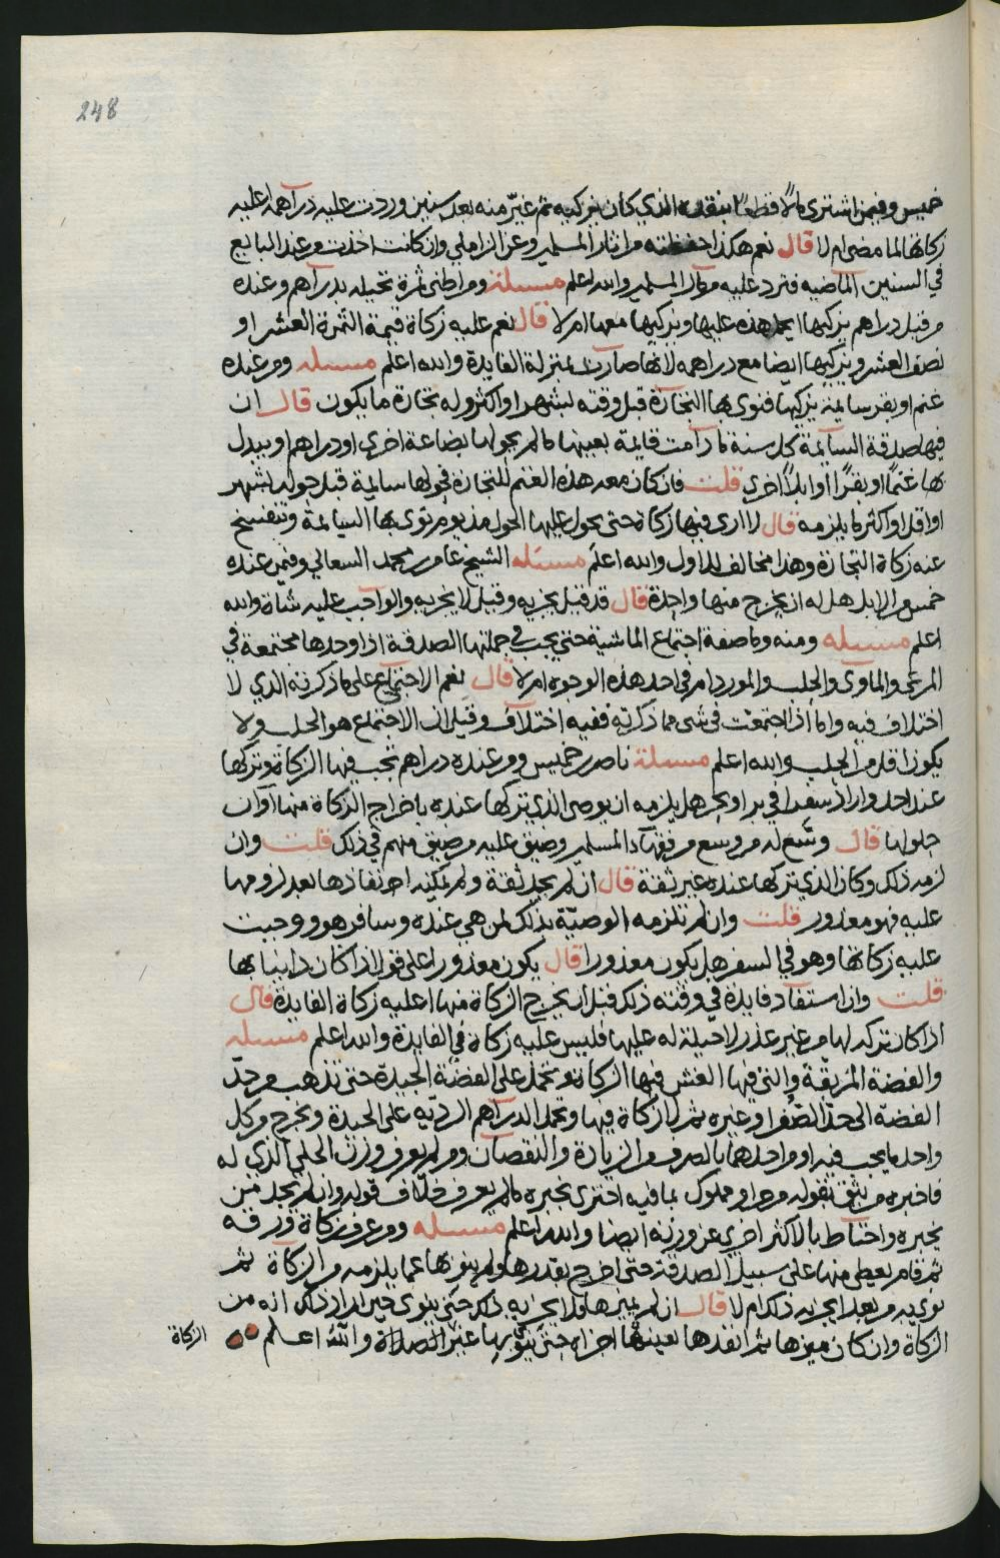 248
خميس وفيمن اشترى مالا قطعا بنقده الذي كان يزكيه ثم غير منه بعد سنين وردت عليه دراهمه اعليه
زكاتها لما مضى ام لا قال نعم هكذا حفظته من اثار المسلمين وعن الزاملي وان كانت اخذت من عند البايع
في السنين الماضيه فترد عليه من مال المسلمين والله اعلم مسئلة ومن اطنى ثمرة نخيله بدراهم وعنده
من قبل دراهم يزكيها ايحمل هذه عليها ويزكيها معها ام لا قال نعم عليه زكاة قيمة الثمرة العشر او
نصف العشر ويزكيها ايضا مع دراهمه لانها صارت بمنزلة الفايدة والله اعلم مسئله ومن عنده
غنم او بقر سايمة يزكيها فنوى بها التجارة قبل وقته لشهر او اكثر وله تجارة ما يكون قال ان
فيها صدقة السايمة كل سنة ما دامت قايمة بعينها ما لم يحولها بضاعة اخرى او دراهم او يبدل
بها غنما او بقرا او ابلا اخرى قلت فان كان معه هذه الغنم للتجارة فحولها سايمة قبل حوله لشهر
او اقل او اكثر ما يلزمه قال لا ارى فيها زكاة حتى يحول عليها الحول مذ يوم نوى بها السايمة وتنفسخ
عنه زكاة التجارة وهذا مخالف للاول والله اعلم مسئله الشيخ عامر بن محمد السعالي وفيمن عنده
خمس من الابل هل له ان يخرج منها واحدة قال قد قيل يجزيه وقيل لا يجزيه والواجب عليه شاة والله
اعلم مسئله ومنه وما صفة اجتماع الماشية حتى يجب في جملتها الصدقة اذا وحدها مجتمعة في
المرعى والماوى والحلب والمورد ام في احد هذه الوجوه ام لا قال نعم الاجتماع على ما ذكرته الذي لا
اختلاف فيه واما اذا اجتمعت في شي مما ذكرته ففيه اختلاف وقيل ان الاجتماع هو الحلب ولا
يكون اقل من الحلب والله اعلم مسئلة ناصر بن خميس ومن عنده دراهم تجب فيها الزكاة وتركها
عند احد واراد سفرا في بر او بحر هل يلزمه ان يوصي الذي تركها عنده باخراج الزكاة منها اوان
حلولها قال وسّع له من وسع من فقهآء المسلمين وضيق عليه من ضيق منهم في ذلك قلت وان
لزمه ذلك وكان الذي تركها عنده غير ثقة قال ان لم يجد ثقة ولم يمكنه انفاذها بعد لزومها
عليه فهو معذور قلت وان لم تلزمه الوصيّة بذلك لمن هي عنده وسافر هو ووجبت
عليه زكاتها وهو في السفر هل يكون معذورا قال يكون معذورا على قول اذا كان داينا بها
قلت وان استفاد فايدة في وقته ذلك قبل ان يخرج الزكاة منها اعليه زكاة الفايدة قال
اذا كان تركه لها من غير عذر لا حيلة له عليها فليس عليه زكاة في الفايدة والله اعلم مسئله
والفضة المزيقة والتي فيها الغش فيها الزكاة وتحمل على الفضة الجيدة حتى تذهب من حدّ
الفضه الى حدّ الصّفر او غيره ثم لا زكاة فيها وتحمل الدراهم الرديّه على الجيدة وتخرج من كل
واحد ما يجب فيه او من احدهما بالصرف من الزيادة والنقصان ومن لم يعرف وزن الحلي الذي له
فاخبره من يثق بقوله من حر او مملوك بما فيه اجتزى بخبره ما لم يعرف خلاف قوله وان لم يجد من
يخبره واحتاط بالاكثر اجزى عن وزنه ايضا والله اعلم مسئله ومن عرف زكاة ورقه
ثم قام يعطي منها على سبيل الصدقة حتى اخرج بقدرها ولم ينو بها عما يلزمه من الزكاة ثم
نوى به من بعد ايجزيه ذلك ام لا قال ان لم يميزها فلا يجزيه ذلك حتى ينوى حين اراد ذلك انه من
الزكاة وان كان ميزها ثم انفذها بعينها اجزاه حتى ينوى بها غير الصلاة والله اعلم
الزكاة